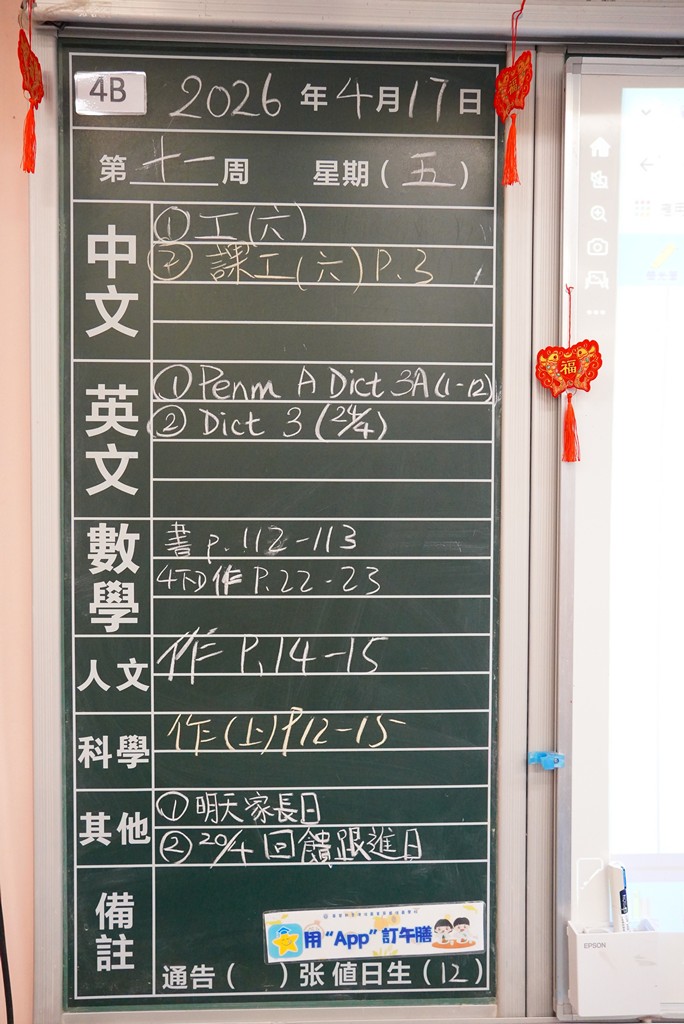 4B 2026年4月17日
第十一周 星期(五)
中文
①工(六)
②課工(六)P.3
英文
①Penm A Dict 3A(1-12)
②Dict 3 (24/4)
數學
書p.112-113
4下D作P.22-23
人文
作P.14-15
科學
作(上)P12-15
其他
①明天家長日
②20/4回饋跟進日
備註
用“App”訂午膳
通告( )张 值日生(12)
福
EPSON